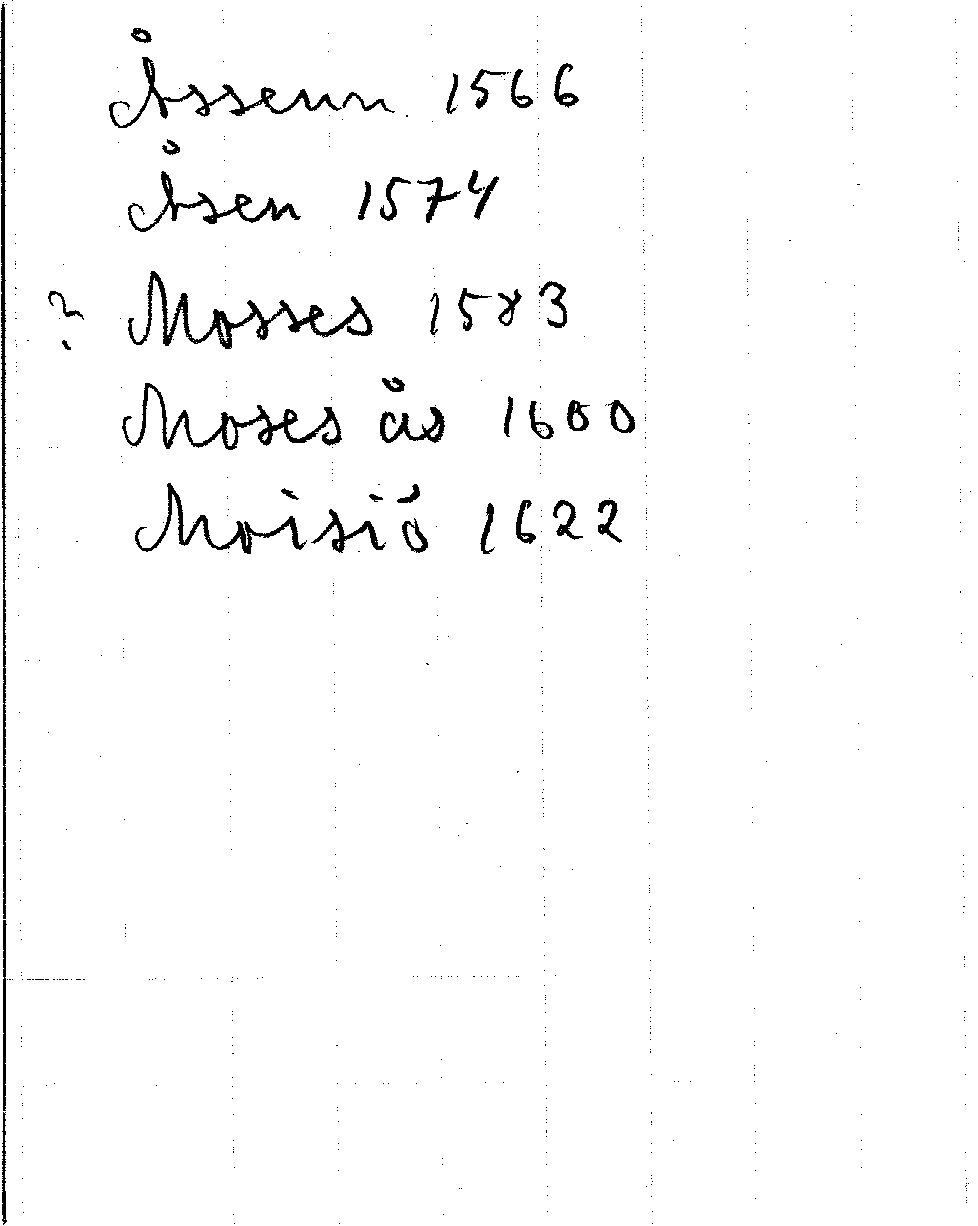 Åssenn 1566
Åsen 1574
? Mosses 1583
Moses ås 1600
Moisiö 1622